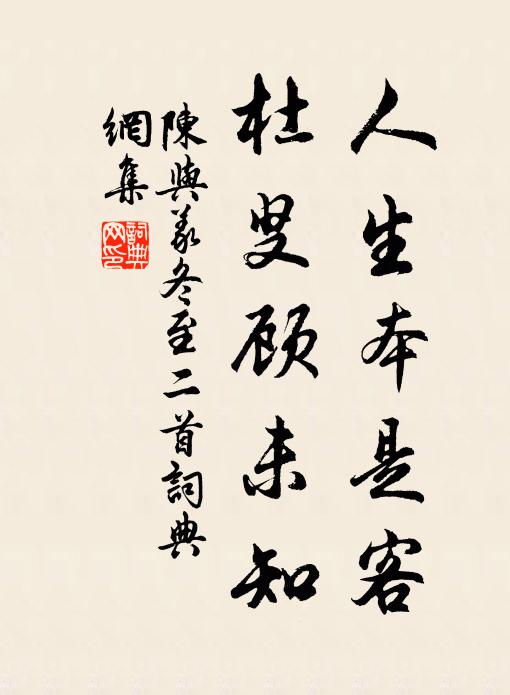 人生本是客
杜叟顾未知
陳與義冬至二首詞典
網集
詞典
网印